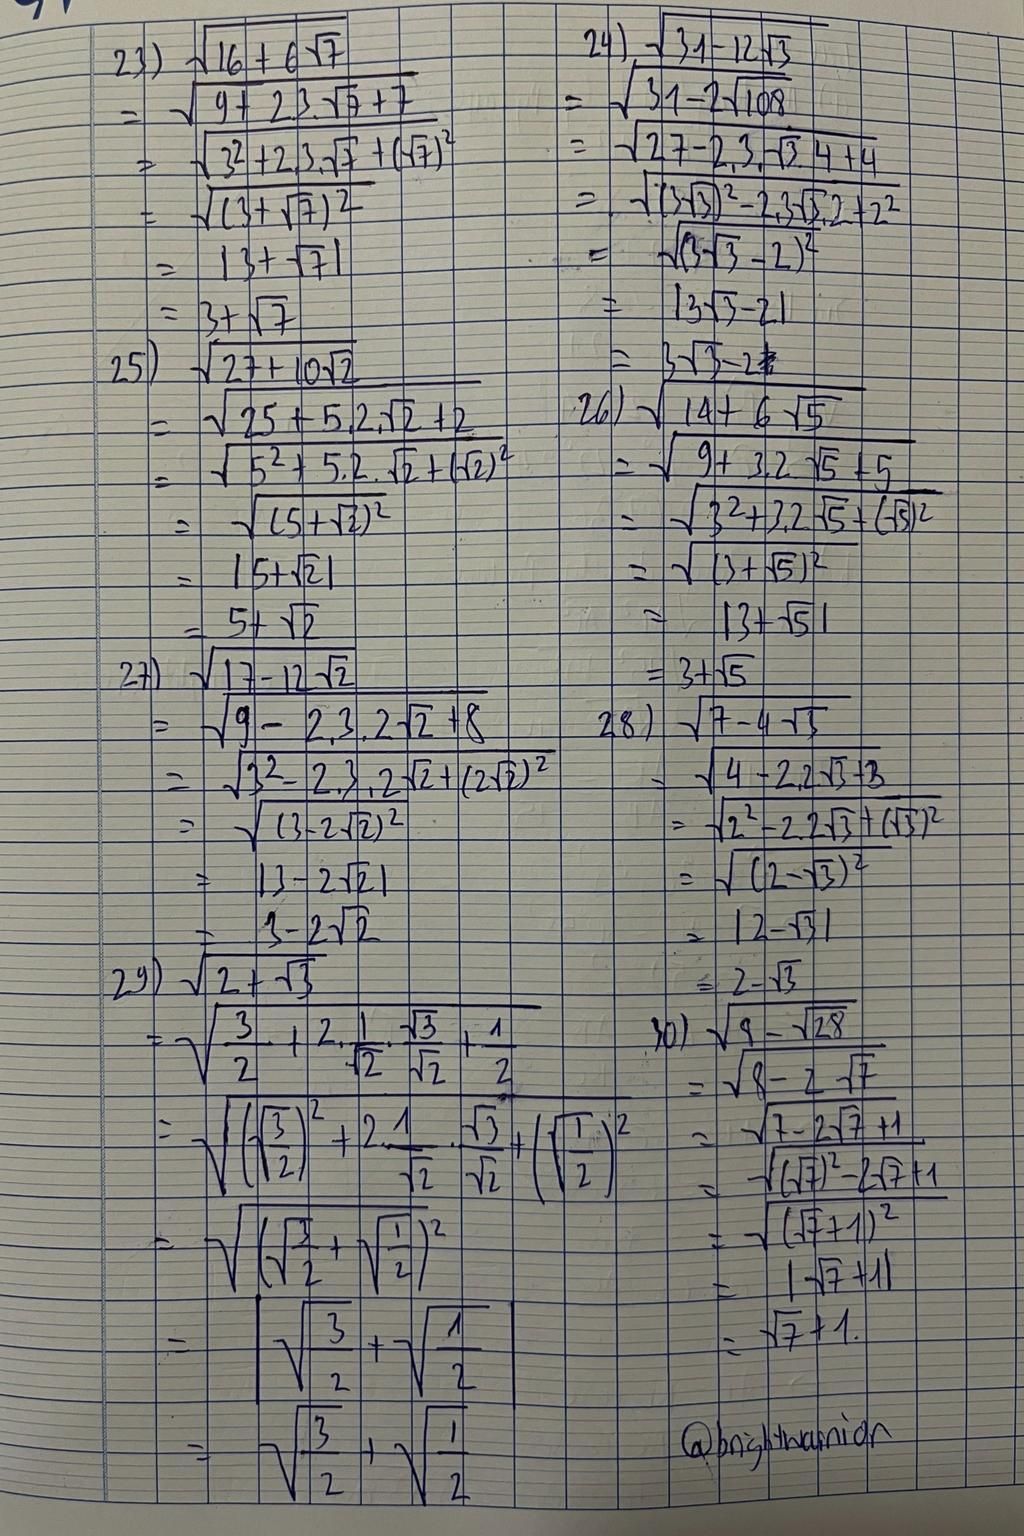 23) √(16 + 6√7)
= √(9 + 2.3.√7 + 7)
= √(3² + 2.3.√7 + (√7)²)
= √((3 + √7)²)
= |3 + √7|
= 3 + √7
25) √(27 + 10√2)
= √(25 + 5.2.√2 + 2)
= √(5² + 5.2.√2 + (√2)²)
= √((5 + √2)²)
= |5 + √2|
= 5 + √2
27) √(17 - 12√2)
= √(9 - 2.3.2√2 + 8)
= √(3² - 2.3.2√2 + (2√2)²)
= √((3 - 2√2)²)
= |3 - 2√2|
= 3 - 2√2
29) √(2 + √3)
= √(3/2 + 2.1/√2.√3/√2 + 1/2)
= √((√(3/2))² + 2.1/√2.√3/√2 + (√(1/2))²)
= √((√(3/2) + √(1/2))²)
= |√(3/2) + √(1/2)|
= √(3/2) + √(1/2)
24) √(31 - 12√3)
= √(31 - 2√108)
= √(27 - 2.3.√3.4 + 4)
= √((3√3)² - 2.3√3.2 + 2²)
= √((3√3 - 2)²)
= |3√3 - 2|
= 3√3 - 2
26) √(14 + 6√5)
= √(9 + 3.2√5 + 5)
= √(3² + 3.2√5 + (√5)²)
= √((3 + √5)²)
= |3 + √5|
= 3 + √5
28) √(7 - 4√3)
= √(4 - 2.2√3 + 3)
= √(2² - 2.2√3 + (√3)²)
= √((2 - √3)²)
= |2 - √3|
= 2 - √3
30) √(8 - √28)
= √(8 - 2√7)
= √(7 - 2√7 + 1)
= √((√7)² - 2√7 + 1)
= √((√7 + 1)²)
= |√7 + 1|
= √7 + 1.